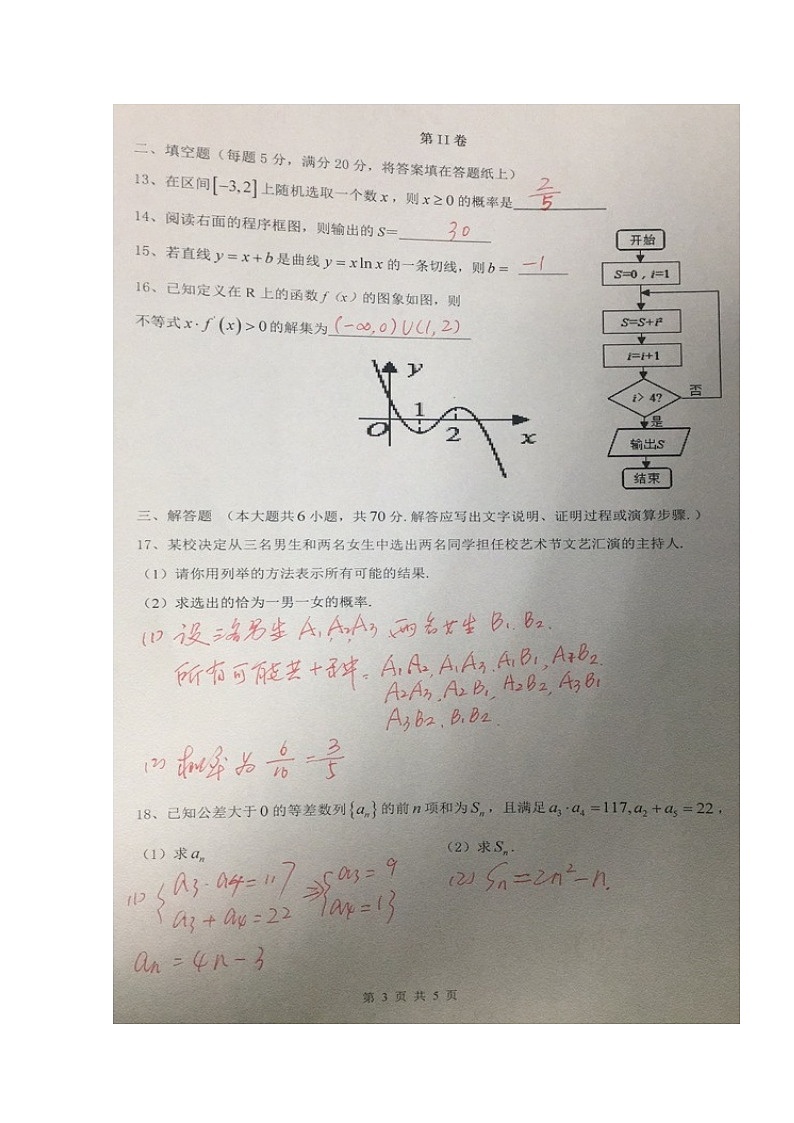 第II卷
二、填空题（每题5分，满分20分，将答案填在答题纸上）
13、在区间[−3,2]上随机选取一个数x，则x≥0的概率是 2/5
14、阅读右面的程序框图，则输出的S= 30
15、若直线y=x+b是曲线y=xlnx的一条切线，则b= −1
16、已知定义在R上的函数f（x）的图象如图，则
不等式x·f′(x)>0的解集为 (-∞,0)∪(1,2)
开始
S=0，i=1
S=S+i²
i=i+1
i>4?
否
是
输出S
结束
y
O
1
2
x
三、解答题 （本大题共6小题，共70分.解答应写出文字说明、证明过程或演算步骤.）
17、某校决定从三名男生和两名女生中选出两名同学担任校艺术节文艺汇演的主持人.
（1）请你用列举的方法表示所有可能的结果.
（2）求选出的恰为一男一女的概率.
(1) 设三名男生 A₁,A₂,A₃、两名女生 B₁、B₂.
所有可能共十种。A₁A₂,A₁A₃,A₁B₁,A₁B₂.
A₂A₃,A₂B₁,A₂B₂,A₃B₁
A₃B₂,B₁B₂.
(2) 概率为 6/10 = 3/5
18、已知公差大于0的等差数列{aₙ}的前n项和为Sₙ，且满足a₃·a₄=117,a₂+a₅=22，
（1）求aₙ （2）求Sₙ.
(1) { a₃·a₄=117 ⇒ { a₃=9 (2) Sₙ=2n²−n.
a₃+a₄=22 a₄=13
aₙ=4n−3
第 3 页 共 5 页